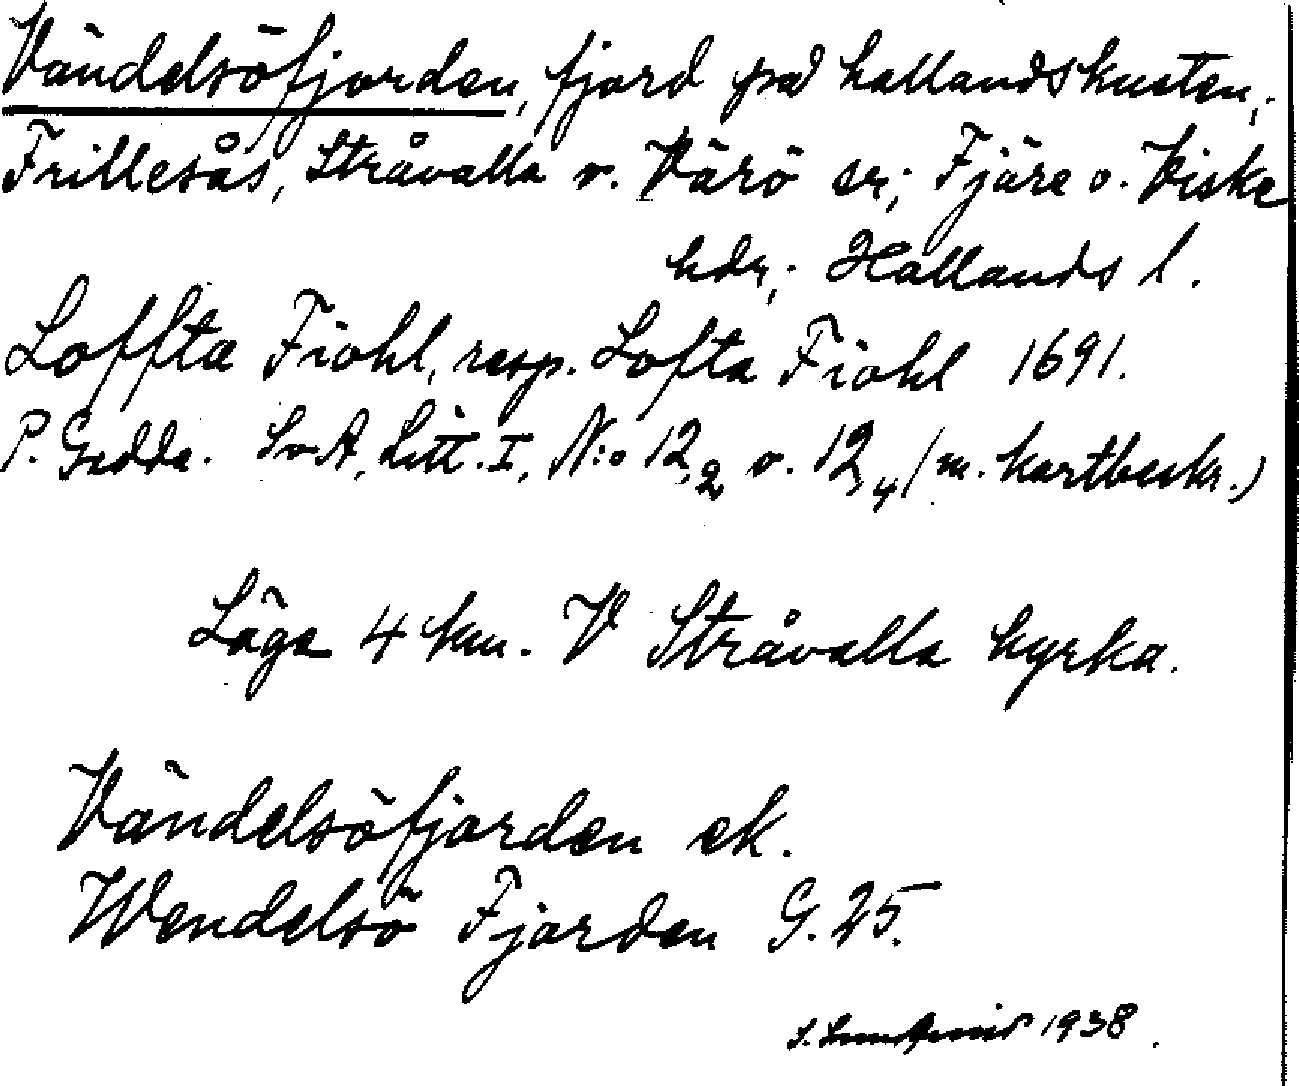 Vändelsöfjorden, fjord på hallandskusten,;
Frillesås, Stråvalla o. Värö sr; Fjäre o. Viske
hdr,; Hallands l.
Loffta Fiohl, resp. Lofta Fiohl 1691.
P. Gedda. SvA, Litt. I, N:o 12,2 o. 12,4 (m. kartbeskr.)
Läge 4 km. V Stråvalla kyrka.
Vändelsöfjorden ek.
Wendelsö Fjorden G. 25.
1938.